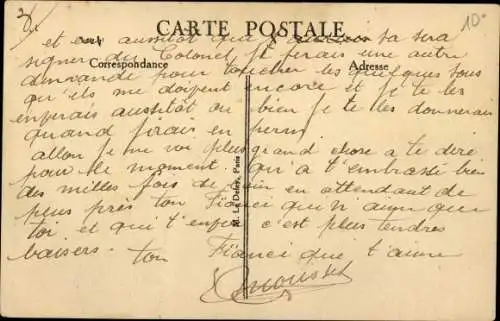 2)
10-
CARTE POSTALE
Correspondance
Adresse
et aussitôt que sa sera
signer du Colonel je ferais une autre
demande pour toucher les quelques sous
qu'ils me doivent encore et je te les
enferais aussitôt ou bien je te les donnerais
quand j'irais en perm
allon je ne voi plus grand chose a te dire
pour le moment. qu'a t'embrassé bien
des milles fois de loin en attendant de
plus près ton Fianci qui n'aim que
toi et qui t'enfoie c'est plus tendres
baisers. ton Fianci que t'aime
M. Le Deley, Paris